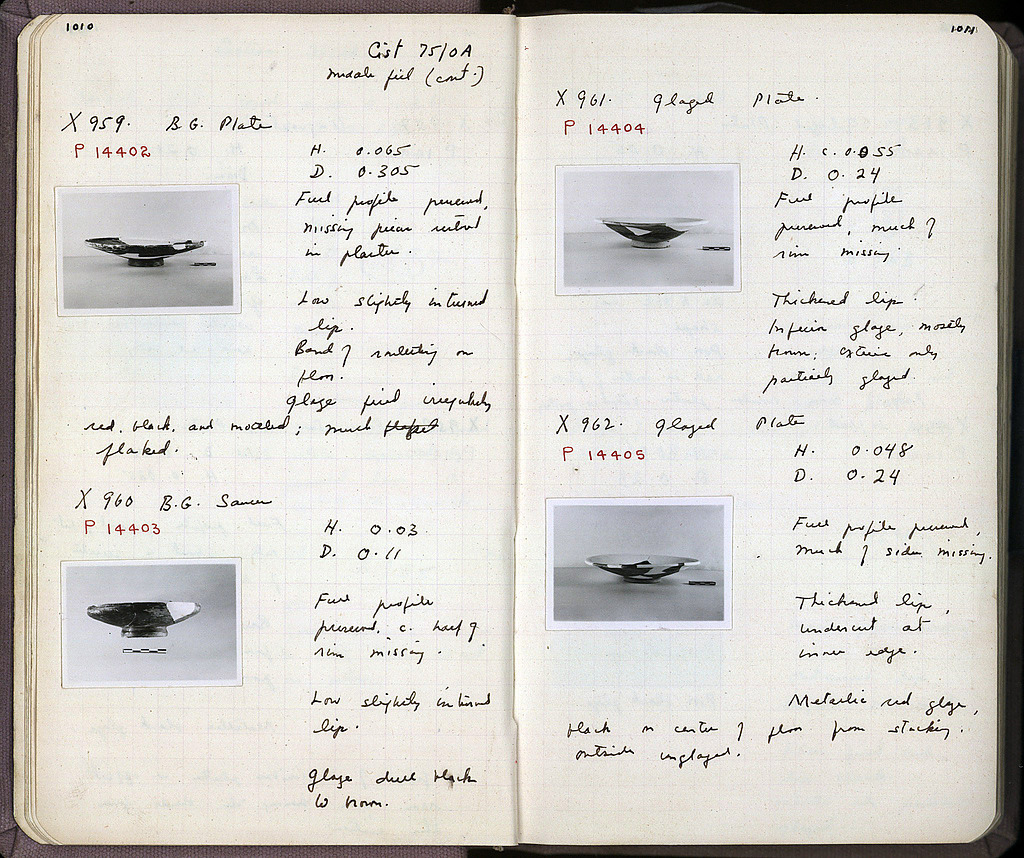 1010
Cist 75/0A
middle fill (cont.)
X 959. B.G. Plate
P 14402
H. 0.065
D. 0.305
Full profile preserved,
missing pieces restored
in plaster.
Low slightly inturned
lip.
Band of rouletting on
floor.
Glaze fired irregularly
red, black, and mottled; much
flaked.
X 960 B.G. Saucer
P 14403
H. 0.03
D. 0.11
Full profile
preserved, c. half of
rim missing.
Low slightly inturned
lip.
Glaze dull black
to brown.
X 961. Glazed Plate.
P 14404
H. c. 0.055
D. 0.24
Full profile
preserved, much of
rim missing
Thickened lip.
Inferior glaze, mostly
brown; exterior only
partially glazed.
X 962. Glazed Plate
P 14405
H. 0.048
D. 0.24
Full profile preserved,
much of sides missing.
Thickened lip,
undercut at
inner edge.
Metallic red glaze,
black in center of floor from stacking.
outside unglazed.